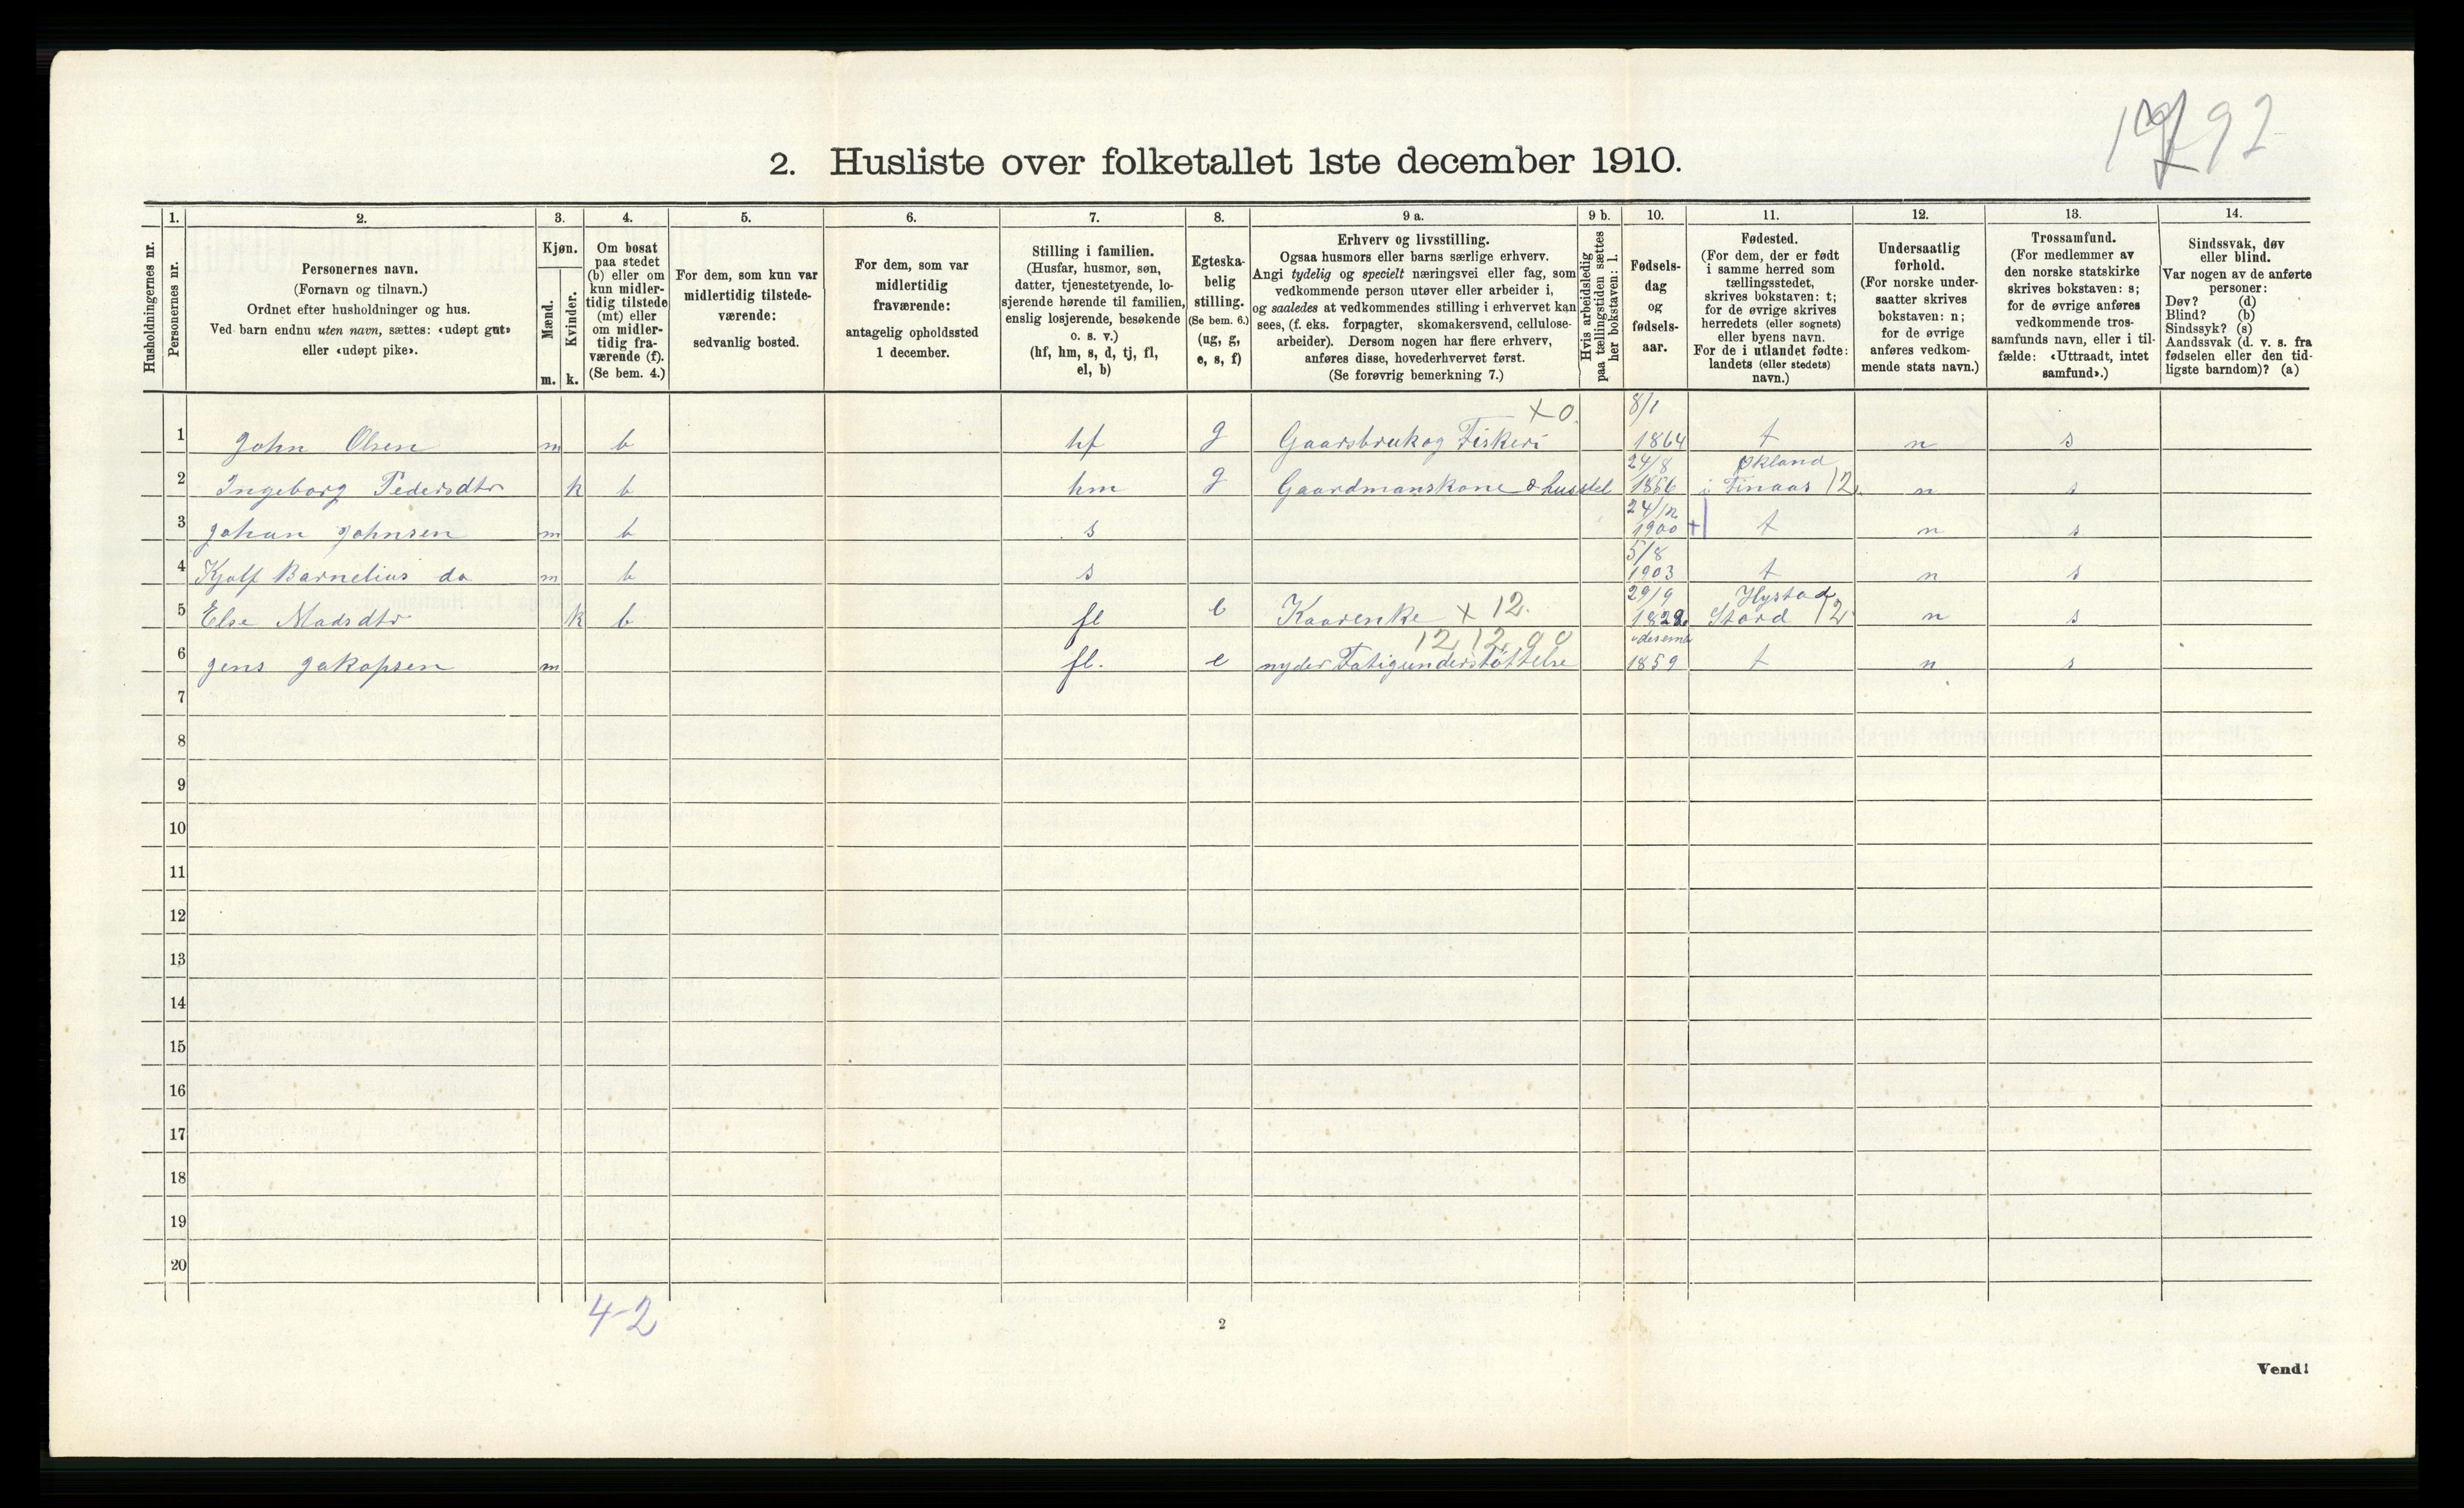 92
2. Husliste over folketallet 1ste december 1910.
1. 2. 3. 4. 5. 6. 7. 8. 9 a. 9 b. 10. 11. 12. 13. 14.
Husholdningernes nr.
Personernes nr.
Personernes navn.
(Fornavn og tilnavn.)
Ordnet efter husholdninger og hus.
Ved barn endnu uten navn, sættes: «udøpt gut»
eller «udøpt pike».
Kjøn.
Mænd.
Kvinder.
m. k.
Om bosat
paa stedet
(b) eller om
kun midler-
tidig tilstede
(mt) eller
om midler-
tidig fra-
værende (f).
(Se bem. 4.)
For dem, som kun var
midlertidig tilstede-
værende:
sedvanlig bosted.
For dem, som var
midlertidig
fraværende:
antagelig opholdssted
1 december.
Stilling i familien.
(Husfar, husmor, søn,
datter, tjenestetyende, lo-
sjerende hørende til familien,
enslig losjerende, besøkende
o. s. v.)
(hf, hm, s, d, tj, fl,
el, b)
Egteska-
belig
stilling.
(Se bem. 6.)
(ug, g,
e, s, f)
Erhverv og livsstilling.
Ogsaa husmors eller barns særlige erhverv.
Angi tydelig og specielt næringsvei eller fag, som
vedkommende person utøver eller arbeider i,
og saaledes at vedkommendes stilling i erhvervet kan
sees, (f. eks. forpagter, skomakersvend, cellulose-
arbeider). Dersom nogen har flere erhverv,
anføres disse, hovederhvervet først.
(Se forøvrig bemerkning 7.)
Hvis arbeidsledig
paa tællingstiden sættes
her bokstaven: l.
Fødsels-
dag
og
fødsels-
aar.
Fødested.
(For dem, der er født
i samme herred som
tællingsstedet,
skrives bokstaven: t;
for de øvrige skrives
herredets (eller sognets)
eller byens navn.
For de i utlandet fødte:
landets (eller stedets)
navn.)
Undersaatlig
forhold.
(For norske under-
saatter skrives
bokstaven: n;
for de øvrige
anføres vedkom-
mende stats navn.)
Trossamfund.
(For medlemmer av
den norske statskirke
skrives bokstaven: s;
for de øvrige anføres
vedkommende tros-
samfunds navn, eller i til-
fælde: «Uttraadt, intet
samfund».)
Sindssvak, døv
eller blind.
Var nogen av de anførte
personer:
Døv? (d)
Blind? (b)
Sindssyk? (s)
Aandssvak (d. v. s. fra
fødselen eller den tid-
ligste barndom)? (a)
x 0. 8/1
1 John Olsen m b hf g Gaarsbruk og Fiskeri 1864 t n s
24/8 Økland
2 Ingeborg Pedersdtr k b hm g Gaardmanskone & husstel 1856 i Finaas 12 n s
24/12
3 Johan Johnsen m b s 1900 t n s
5/8
4 Kjolf Barnelius do m b s 1903 t n s
29/9 Hystad
5 Else Madsdtr k b fl e Kaarenke x 12. 1828 Stord 12 n s
12, 12, 90 desemb
6 Jens Jakopsen m fl. e nyder Fatigunderstøttelse 1859 t n s
7
8
9
10
11
12
13
14
15
16
17
18
19
20
4-2
2
Vend!